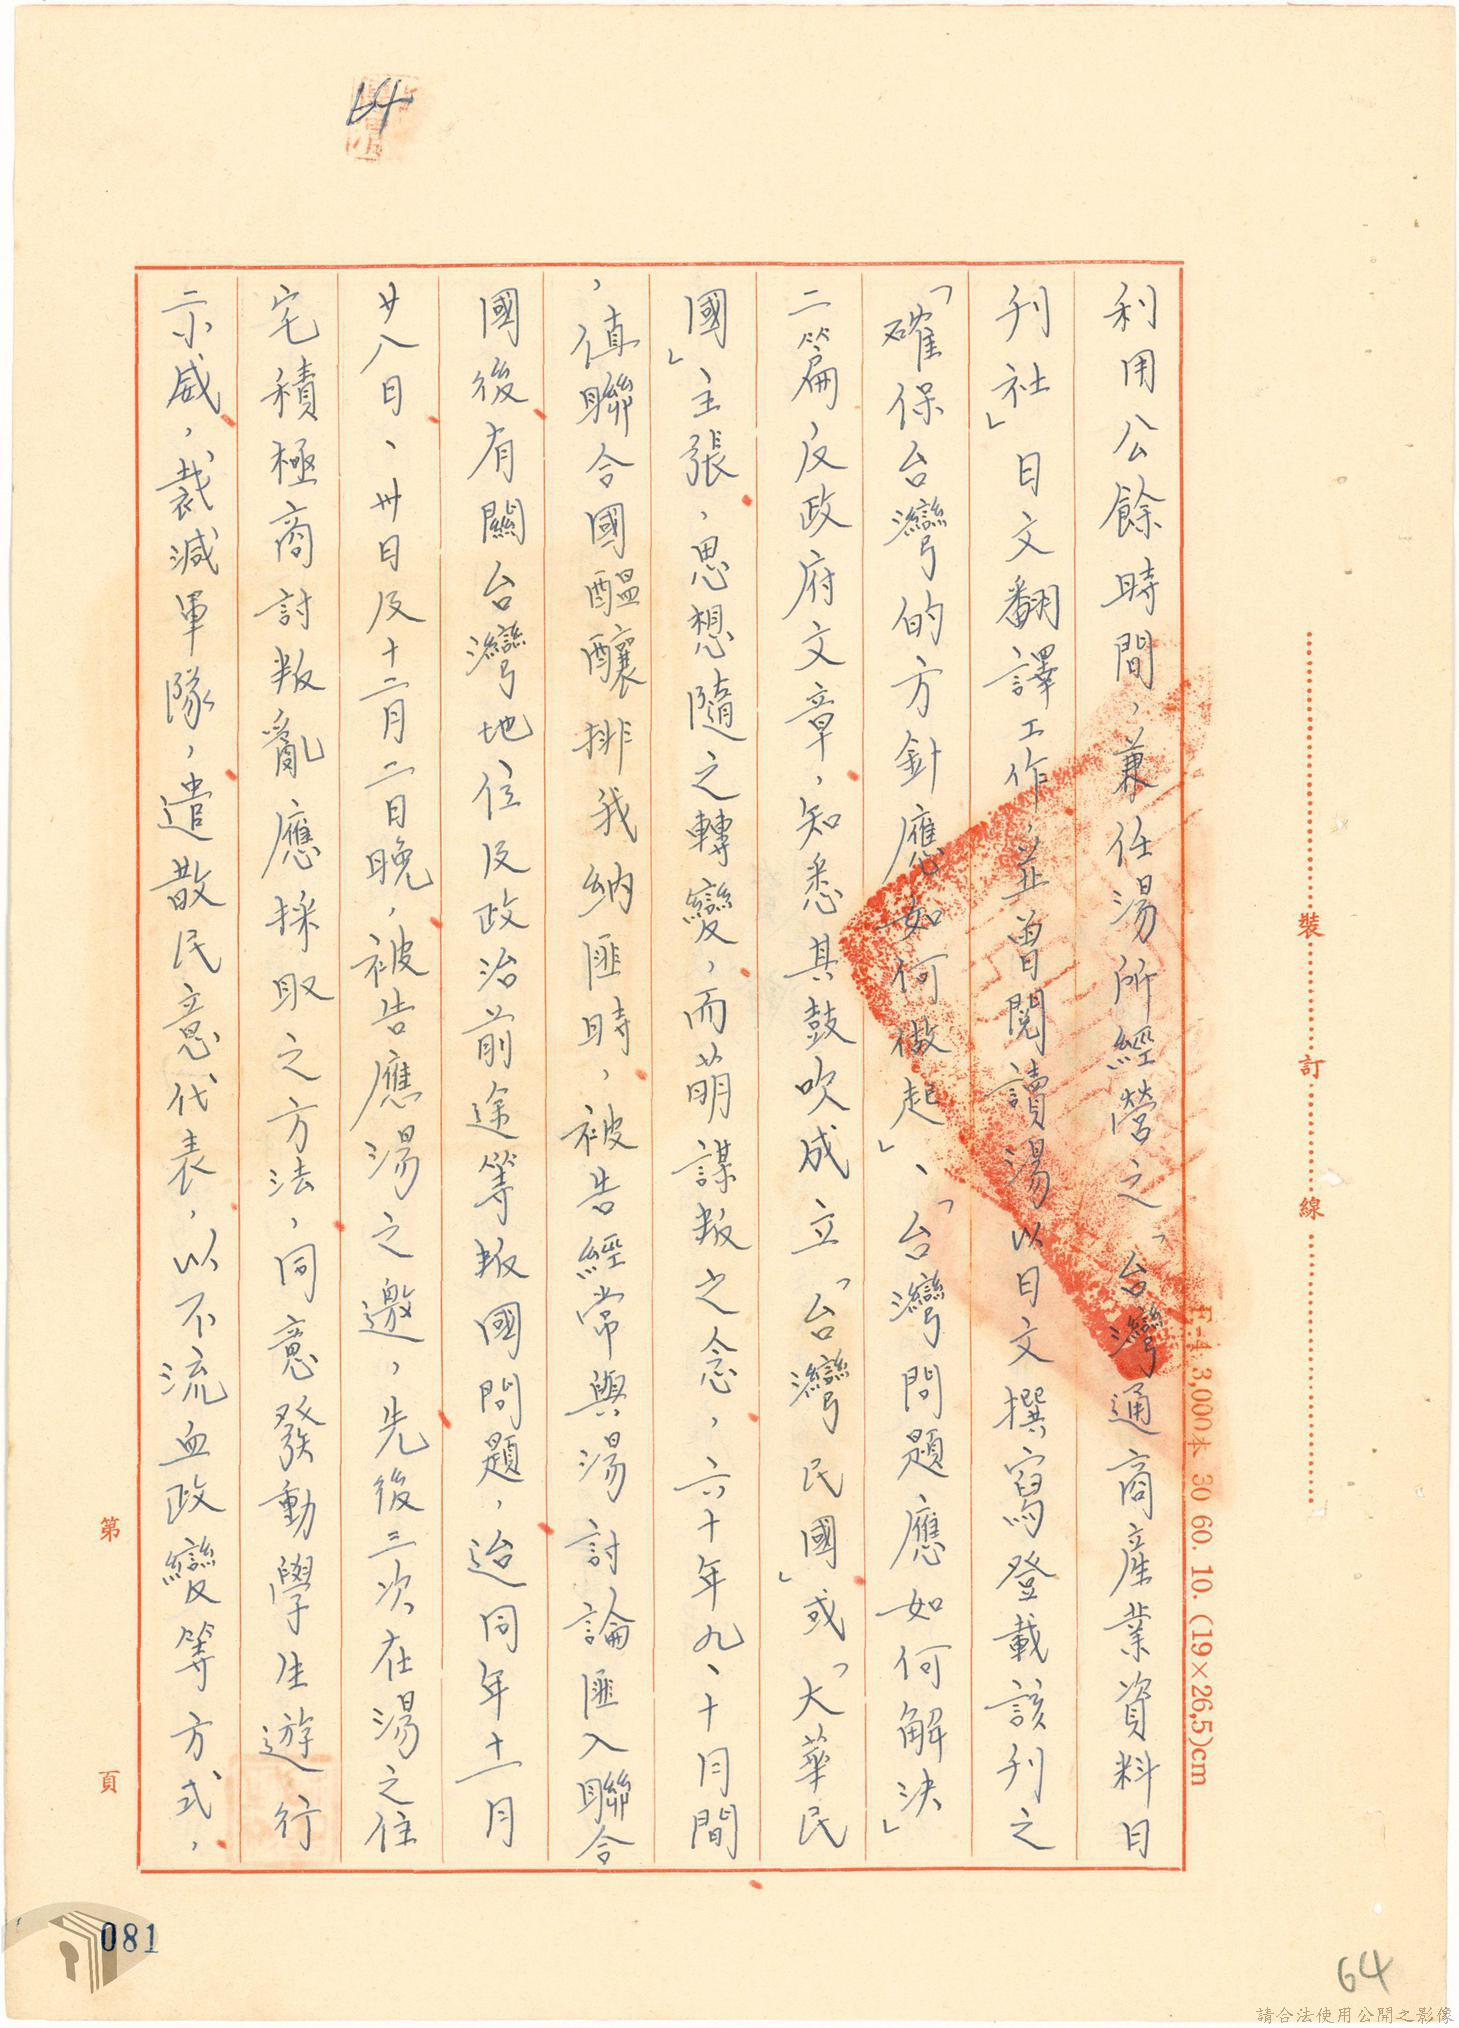 64
利用公餘時間，兼任湯所經營之「台灣通商產業資料日
刊社」日文翻譯工作，並曾閱讀湯以日文撰寫登載該刊之
「確保台灣的方針應如何做起」、「台灣問題應如何解決」
二篇反政府文章，知悉其鼓吹成立「台灣民國」或「大華民
國」主張，思想隨之轉變，而萌謀叛之念，六十年九、十月間
，值聯合國醞釀排我納匪時，被告經常與湯討論匪入聯合
國後有關台灣地位及政治前途等叛國問題，迨同年十一月
廿八日、卅日及十二月二日晚，被告應湯之邀，先後三次在湯之住
宅積極商討叛亂應採取之方法，同意發動學生遊行
示威，裁減軍隊，遣散民意代表，以不流血政變等方式，
裝訂線
F-4 3,000本 30 60. 10. (19×26,5)cm
第 頁
081
64
請合法使用公開之影像